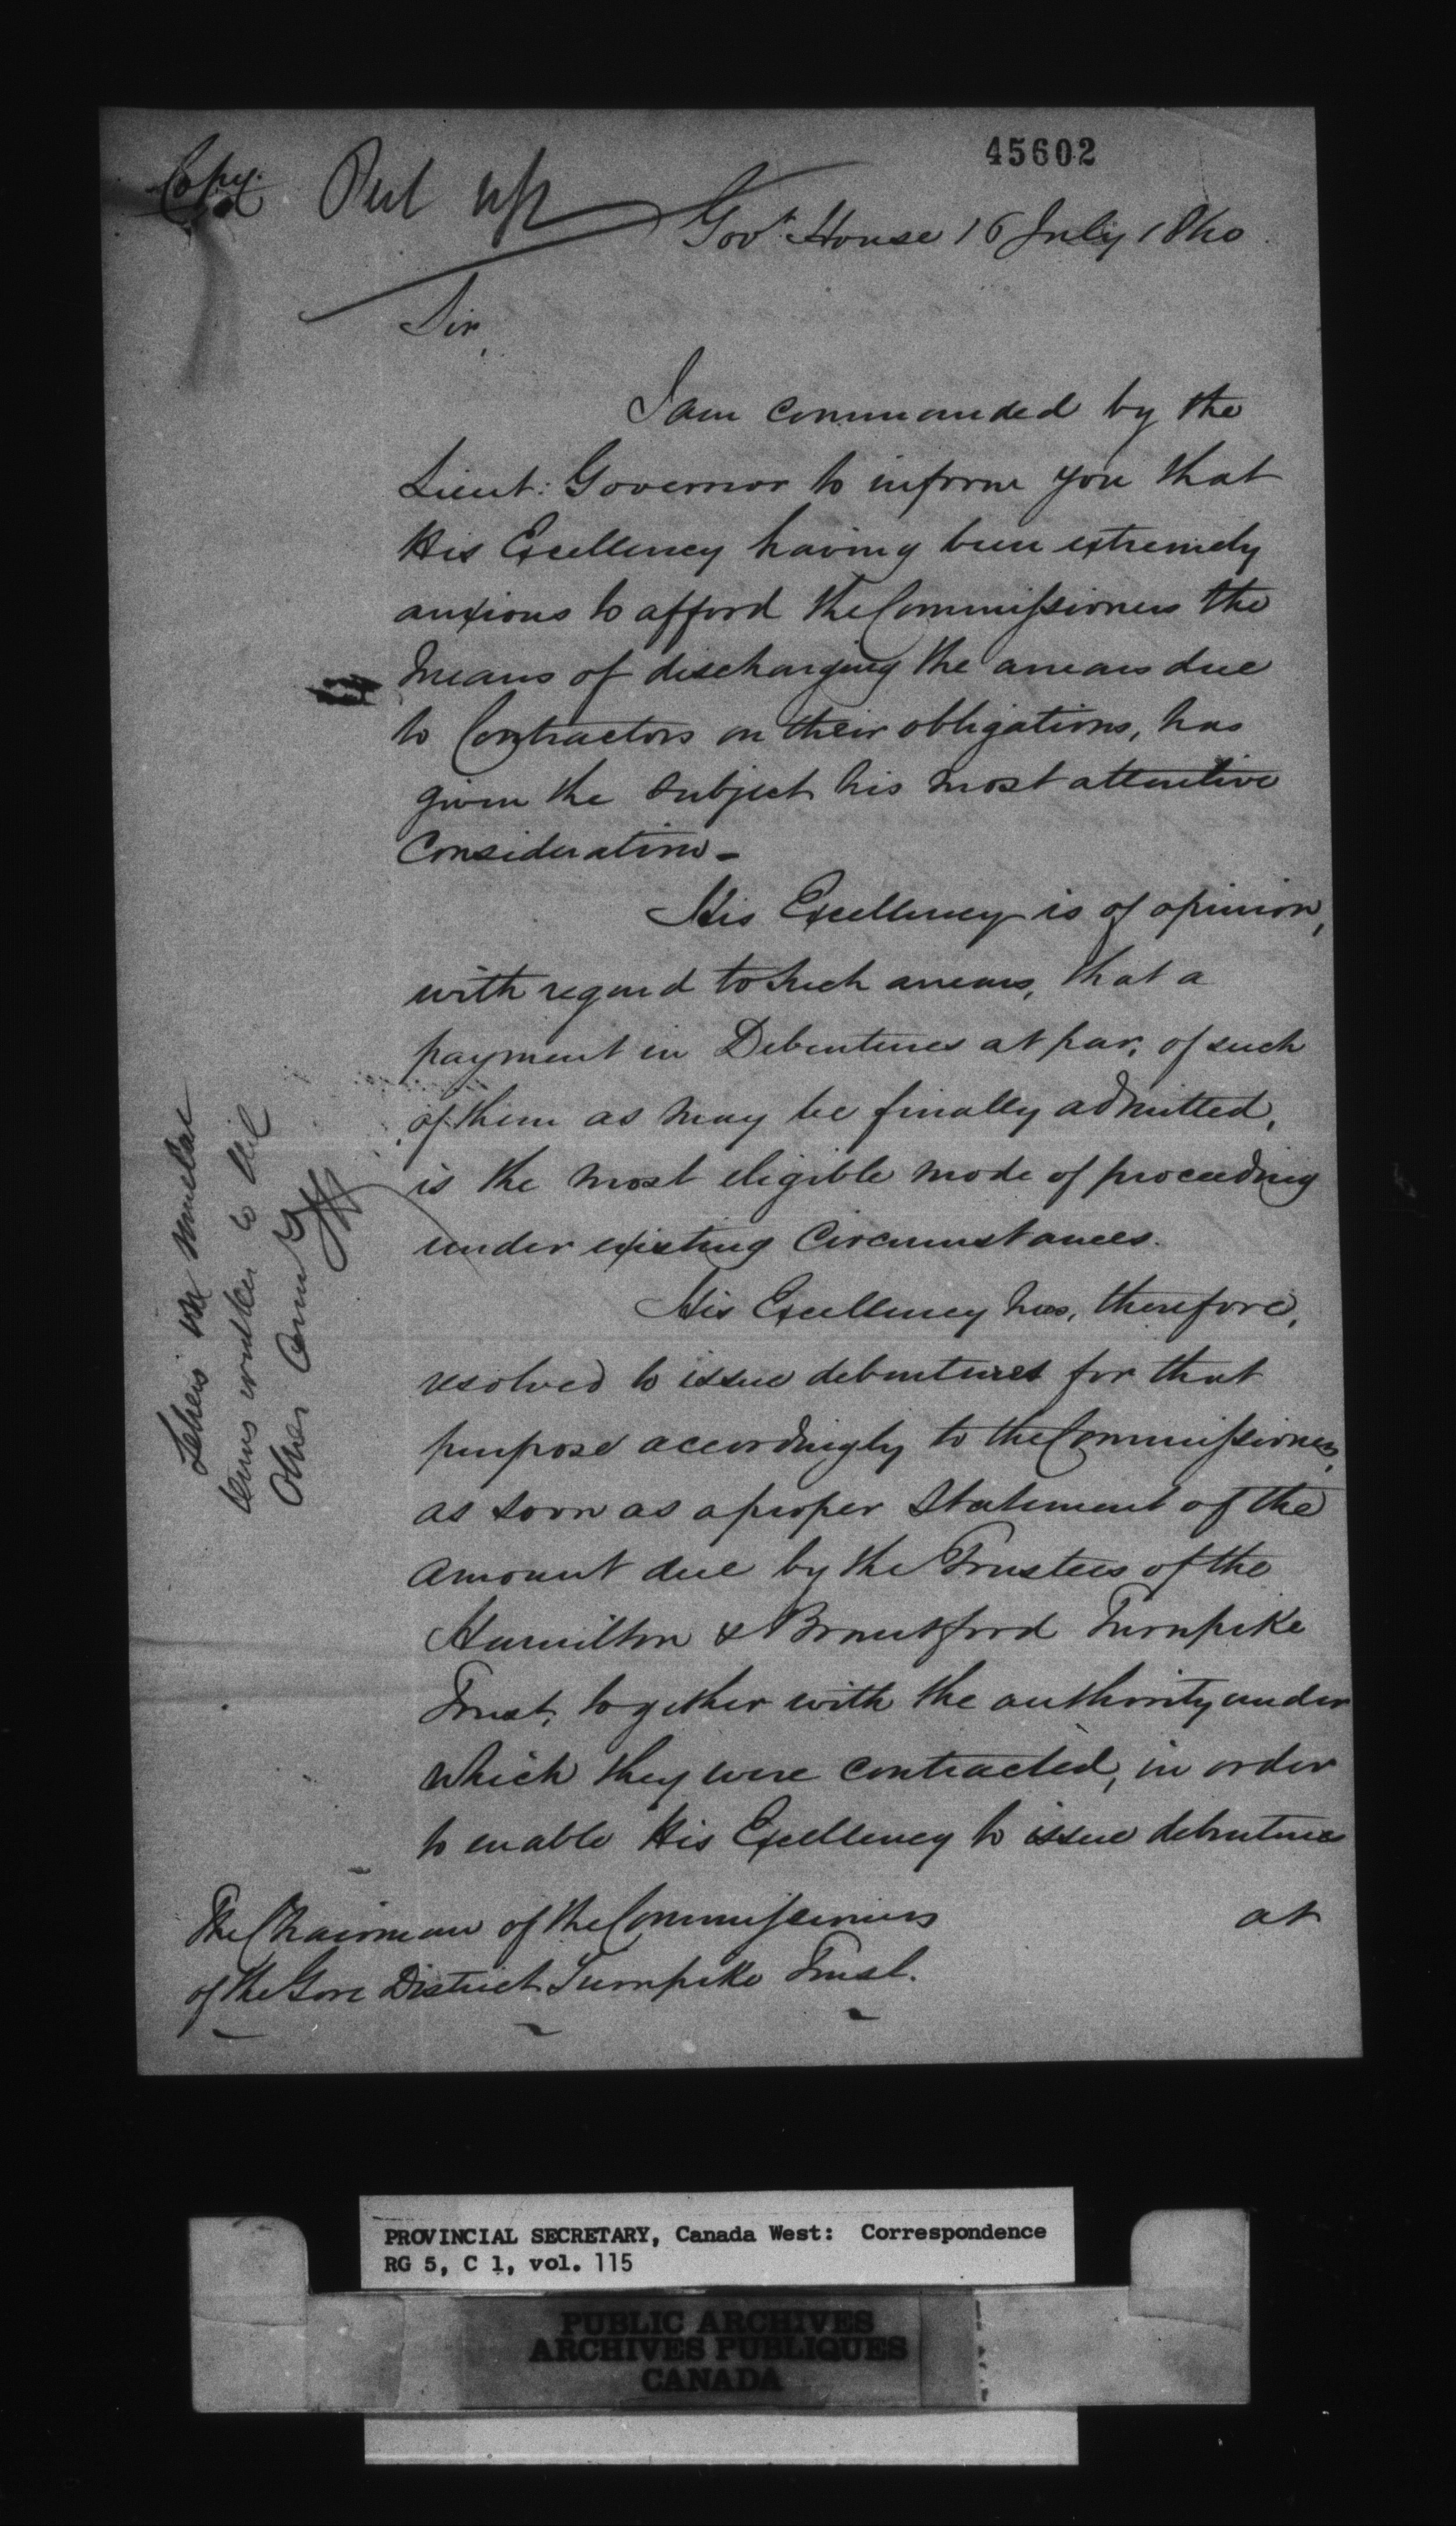 45602
Copy. Put up
Govt. House 16 July 1840.
Sir,
I am commanded by the
Lieut: Governor to inform you that
His Excellency having been extremely
anxious to afford the Commissioners the
means of discharging the arrears due
to Contractors on their obligations, has
given the subject his most attentive
Consideration-
His Excellency is of opinion,
with regard to such arrears, that a
payment in Debentures at par, of such
of them as may be finally admitted,
is the most eligible mode of proceeding
under existing Circumstances.
His Excellency has, therefore,
resolved to issue debentures for that
purpose accordingly to the Commissioners,
as soon as a proper Statement of the
amount due by the Trustees of the
Hamilton & Brantford Turnpike
Trust, together with the authority under
which they were contracted, in order
to enable His Excellency to issue debentures
at
The Chairman of the Commissioners
of the Gore District Turnpike Trust.
Letters in similar
terms written to the
Other Comrs
PROVINCIAL SECRETARY, Canada West: Correspondence
RG 5, C 1, vol. 115
PUBLIC ARCHIVES
ARCHIVES PUBLIQUES
CANADA